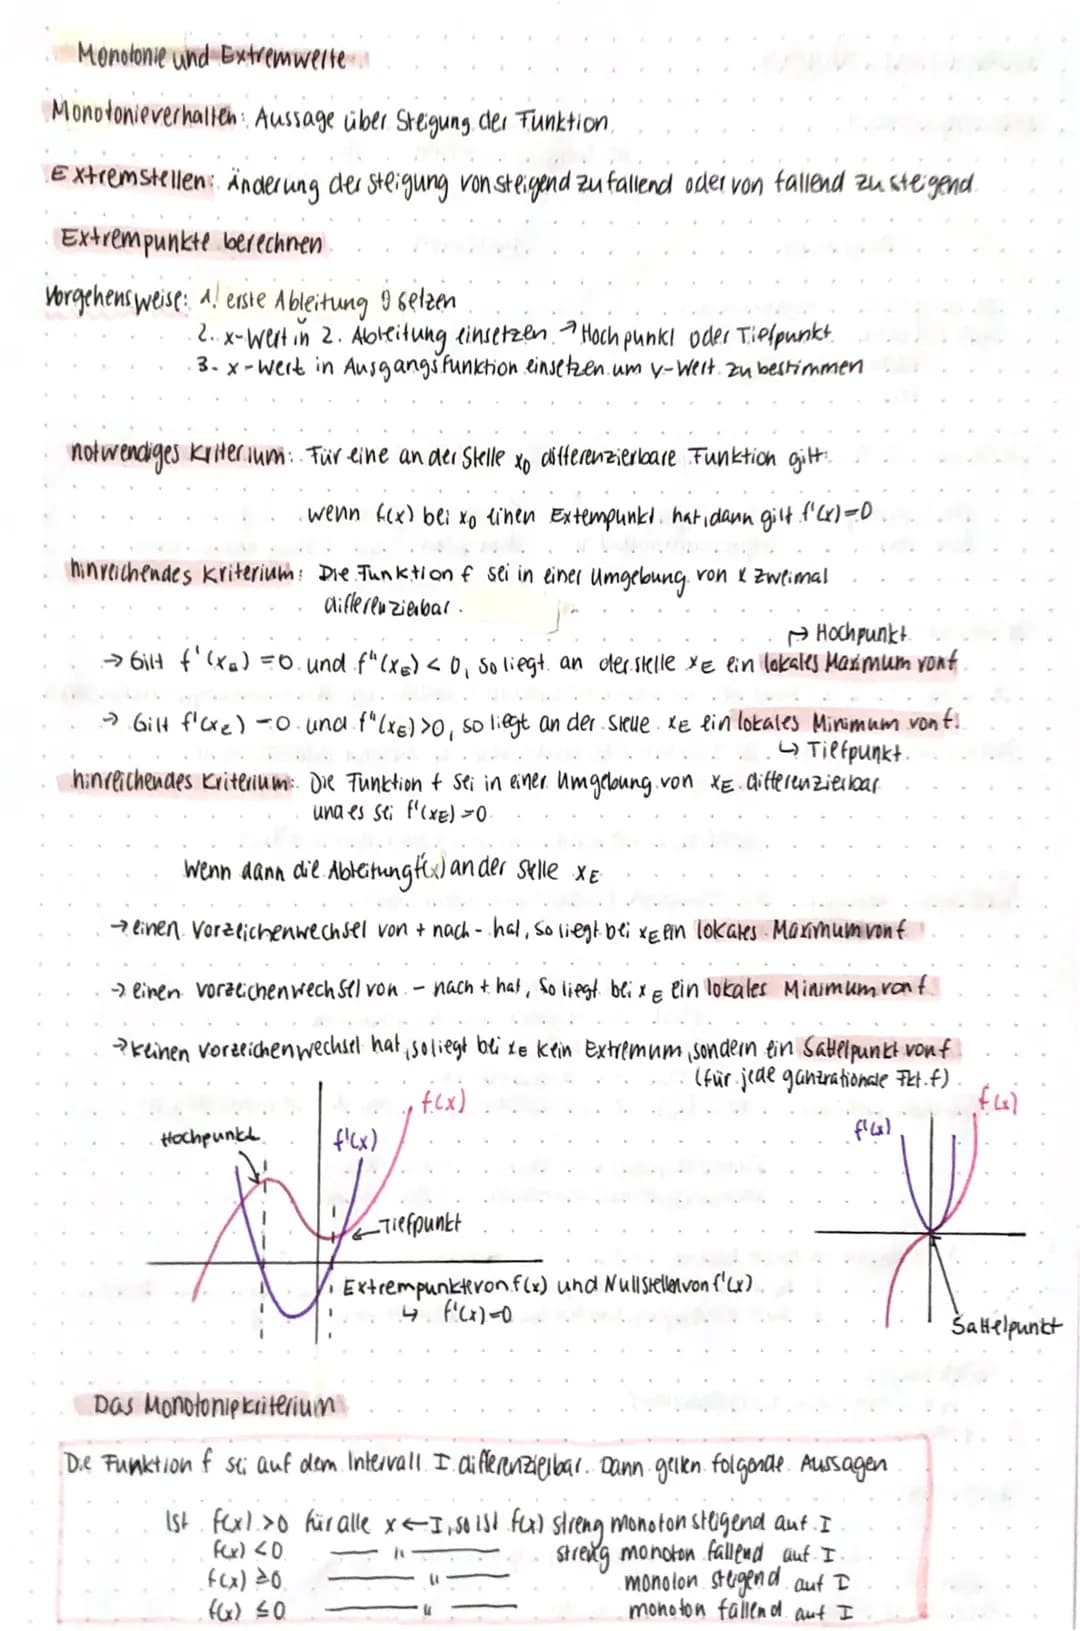 Monotonie und Extremwerte
Monotonieverhalten: Aussage über Steigung der Funktion.
Extremstellen: Änderung der steigung von steigend zu fallend oder von fallend zu steigend.
Extrempunkte berechnen
Vorgehensweise: 1. erste Ableitung 0 setzen
2. x-Wert in 2. Ableitung einsetzen → Hochpunkt oder Tiefpunkt
3. x-Wert in Ausgangsfunktion einsetzen um y-Wert zu bestimmen
notwendiges Kriterium: Für eine an der Stelle x₀ differenzierbare Funktion gilt:
wenn f(x) bei x₀ einen Extempunkt hat, dann gilt f'(x)=0
hinreichendes Kriterium: Die Funktion f sei in einer Umgebung von x zweimal
differenzierbar.
↱ Hochpunkt
→ Gilt f'(xₑ) = 0 und f"(x_E) < 0, so liegt an der stelle x_E ein lokales Maximum von f
→ Gilt f'(xₑ) = 0 und f"(x_E) >0, so liegt an der Stelle x_E ein lokales Minimum von f.
↳ Tiefpunkt.
hinreichendes Kriterium: Die Funktion f sei in einer Umgebung von x_E differenzierbar
und es sei f'(x_E) = 0
Wenn dann die Ableitung f'(x) an der Stelle x_E
→ einen Vorzeichenwechsel von + nach - hat, so liegt bei x_E ein lokales Maximum von f
→ einen vorzeichenwechsel von - nach + hat, so liegt bei x_E ein lokales Minimum von f
→ keinen vorzeichenwechsel hat, so liegt bei xₑ kein Extremum, sondern ein Sattelpunkt von f
(für jede ganzrationale Fkt. f)
f(x)
f(x)
Hochpunkt
f'(x)
f'(x)
Tiefpunkt
Extrempunkte von f(x) und Nullstellen von f'(x)
↳ f'(x)=0
Sattelpunkt
Das Monotoniekriterium
Die Funktion f sei auf dem Intervall I differenzierbar. Dann gelten folgende Aussagen
Ist f(x) >0 für alle x ← I, so ist f(x) streng monoton steigend auf I
f(x) <0 — " — streng monoton fallend auf I
f(x) ≥0 — " — monoton steigend auf I
f(x) ≤0 — " — monoton fallend auf I